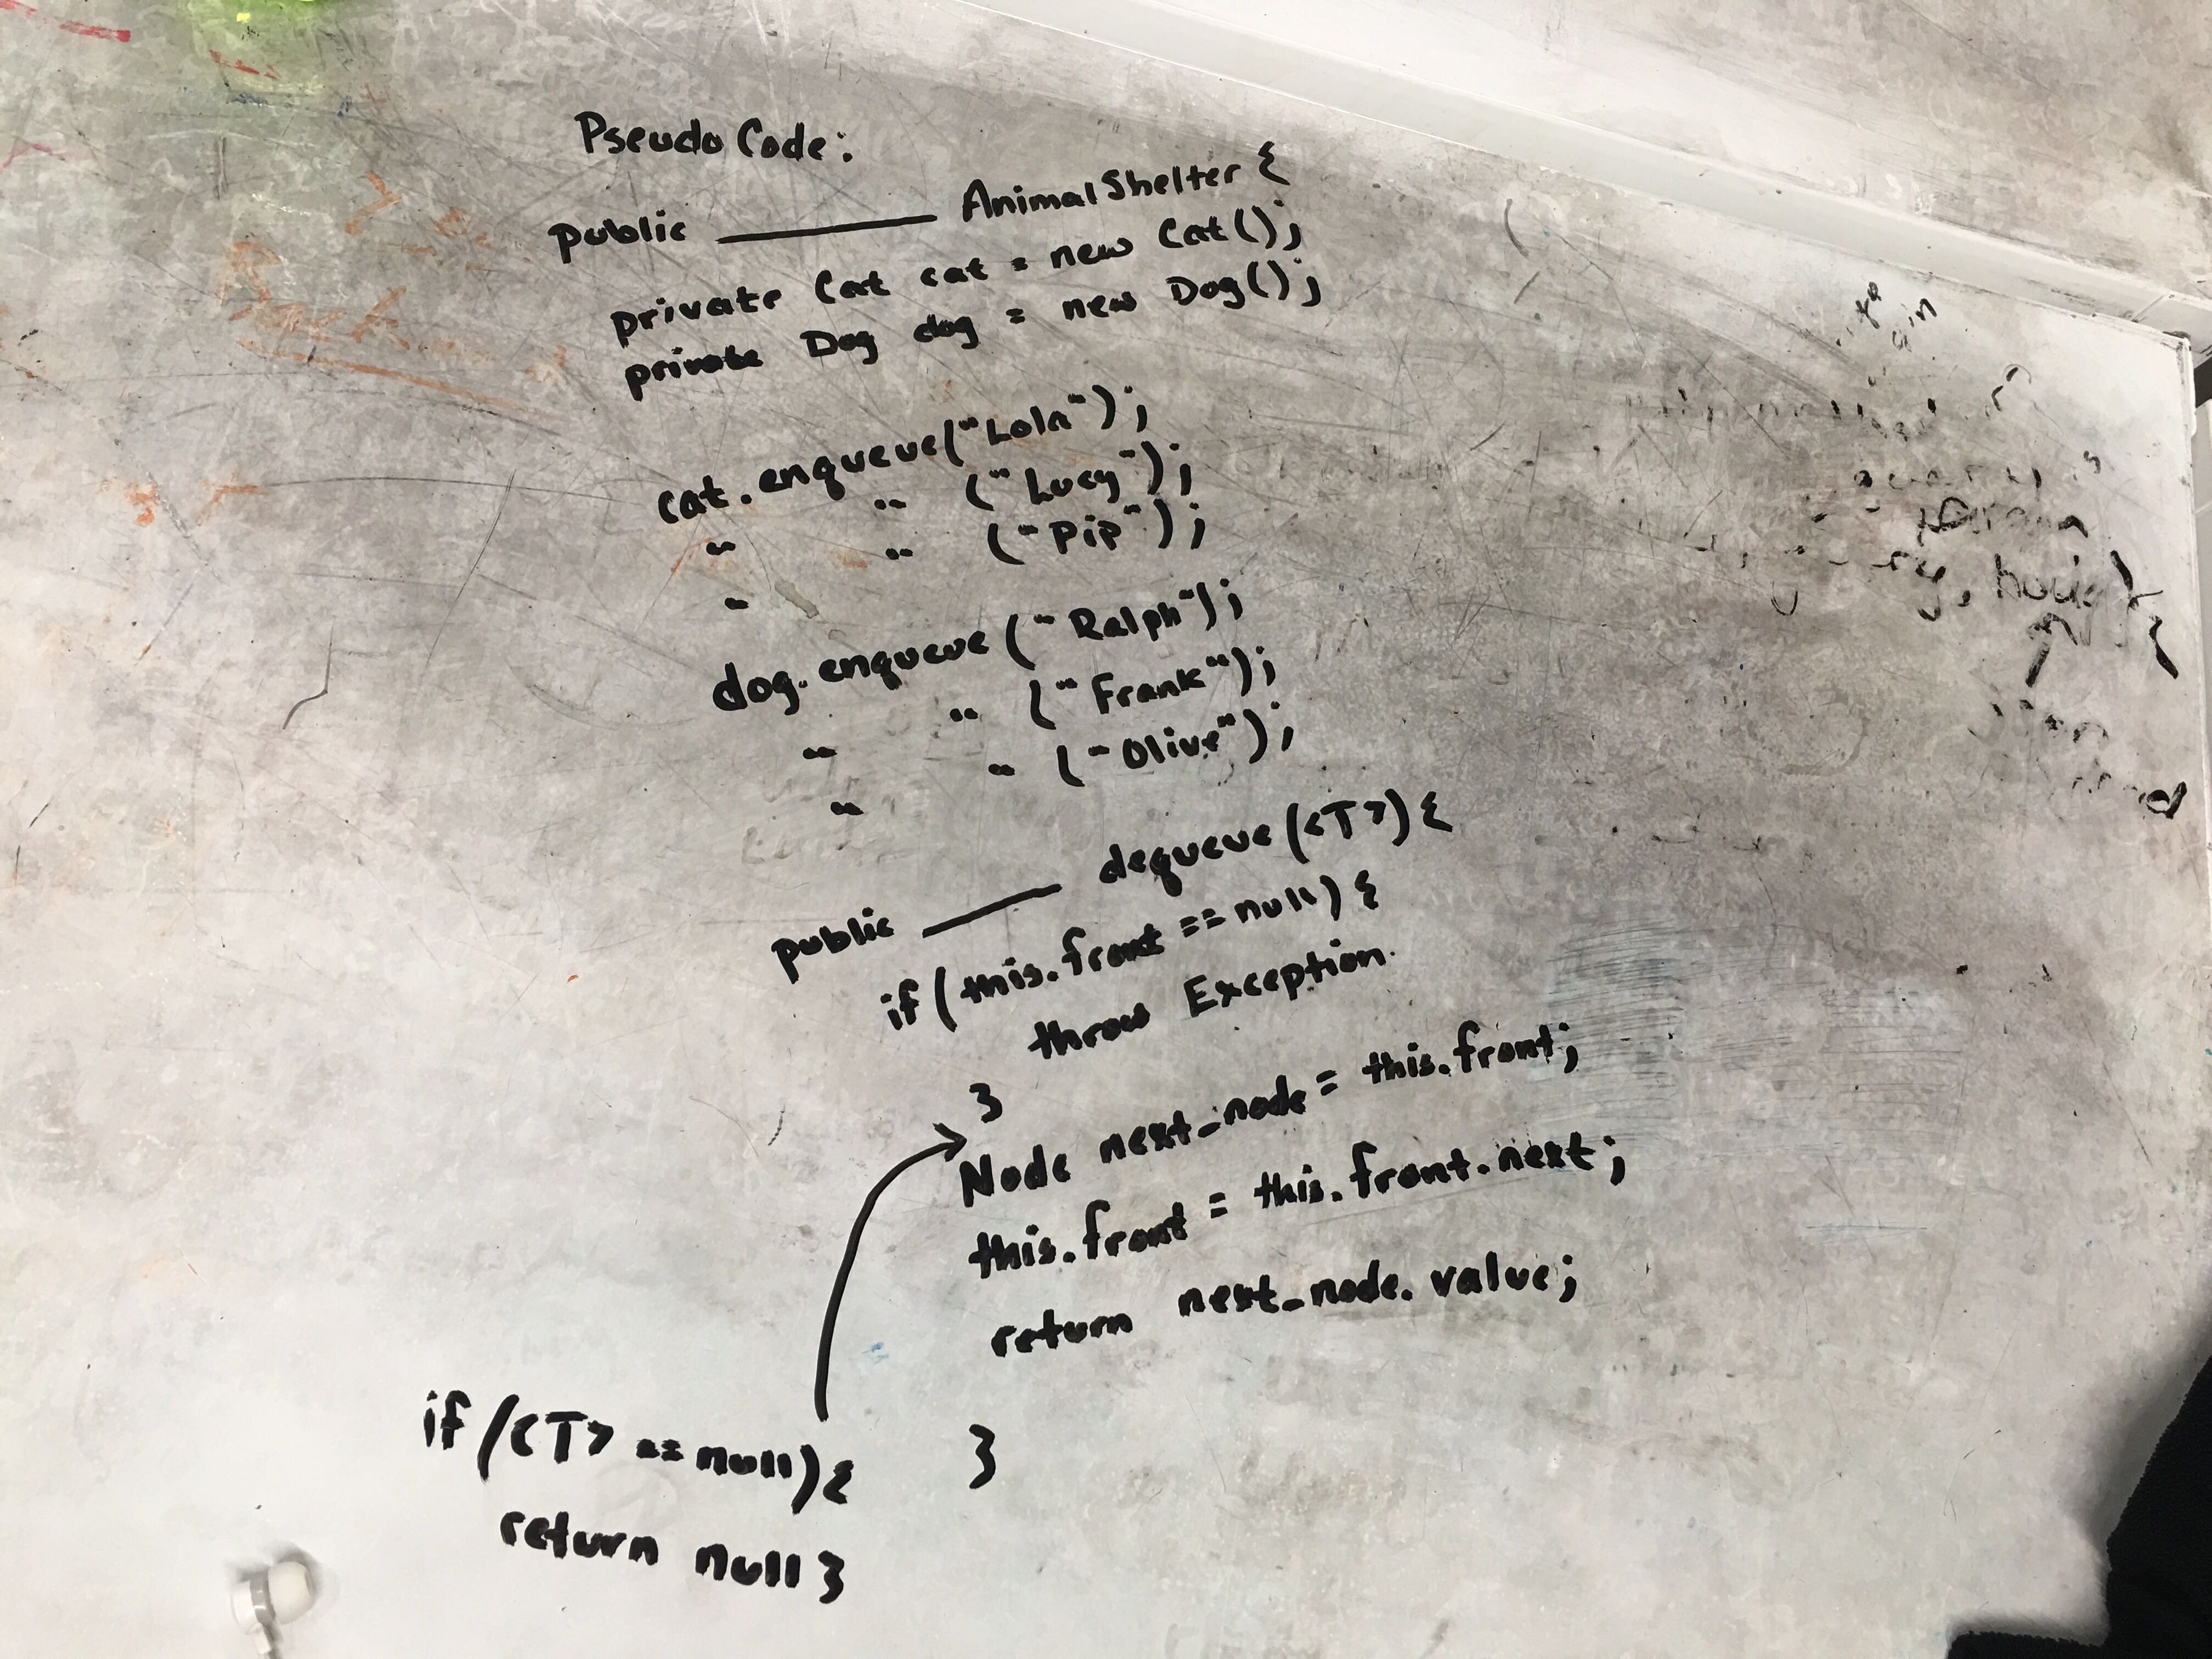 Pseudo Code:
public ______ AnimalShelter {
private Cat cat = new Cat();
private Dog dog = new Dog();
cat.enqueue("Lola");
" " ("Lucy");
" " ("Pip");
"
dog.enqueue("Ralph");
" " ("Frank");
" " ("Olive");
"
public ______ dequeue(<T>) {
if (this.front == null) {
throw Exception.
}
Node next_node = this.front;
this.front = this.front.next;
return next_node.value;
}
if (<T> == null) {
return null }